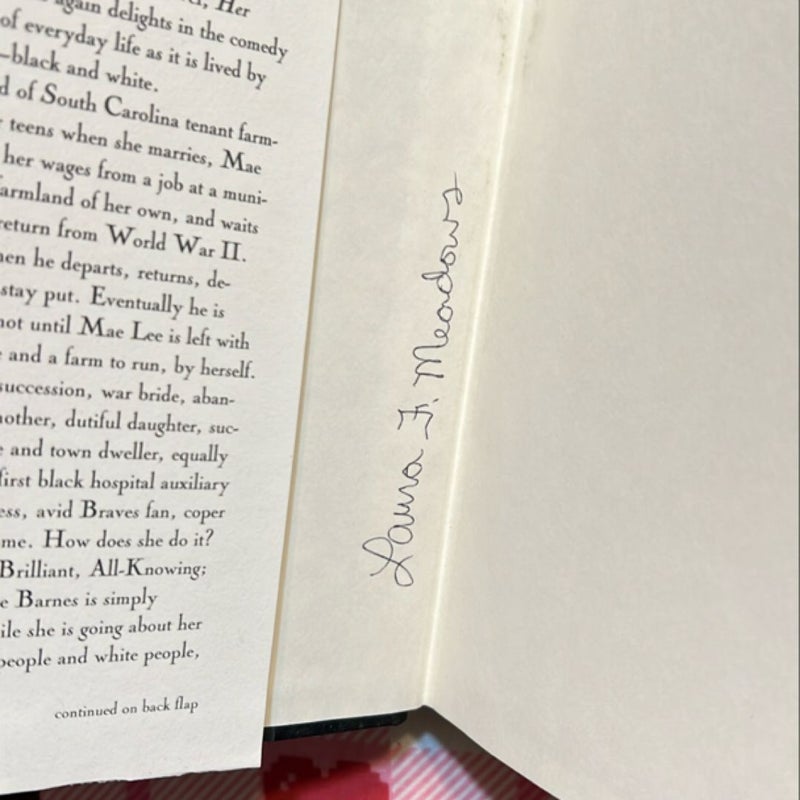 Her
again delights in the comedy
of everyday life as it is lived by
—black and white.
of South Carolina tenant farm-
teens when she marries, Mae
her wages from a job at a muni-
armland of her own, and waits
return from World War II.
hen he departs, returns, de-
stay put. Eventually he is
not until Mae Lee is left with
and a farm to run, by herself.
succession, war bride, aban-
nother, dutiful daughter, suc-
and town dweller, equally
first black hospital auxiliary
ess, avid Braves fan, coper
me. How does she do it?
Brilliant, All-Knowing;
e Barnes is simply
ile she is going about her
people and white people,
continued on back flap
Laura F. Meadows